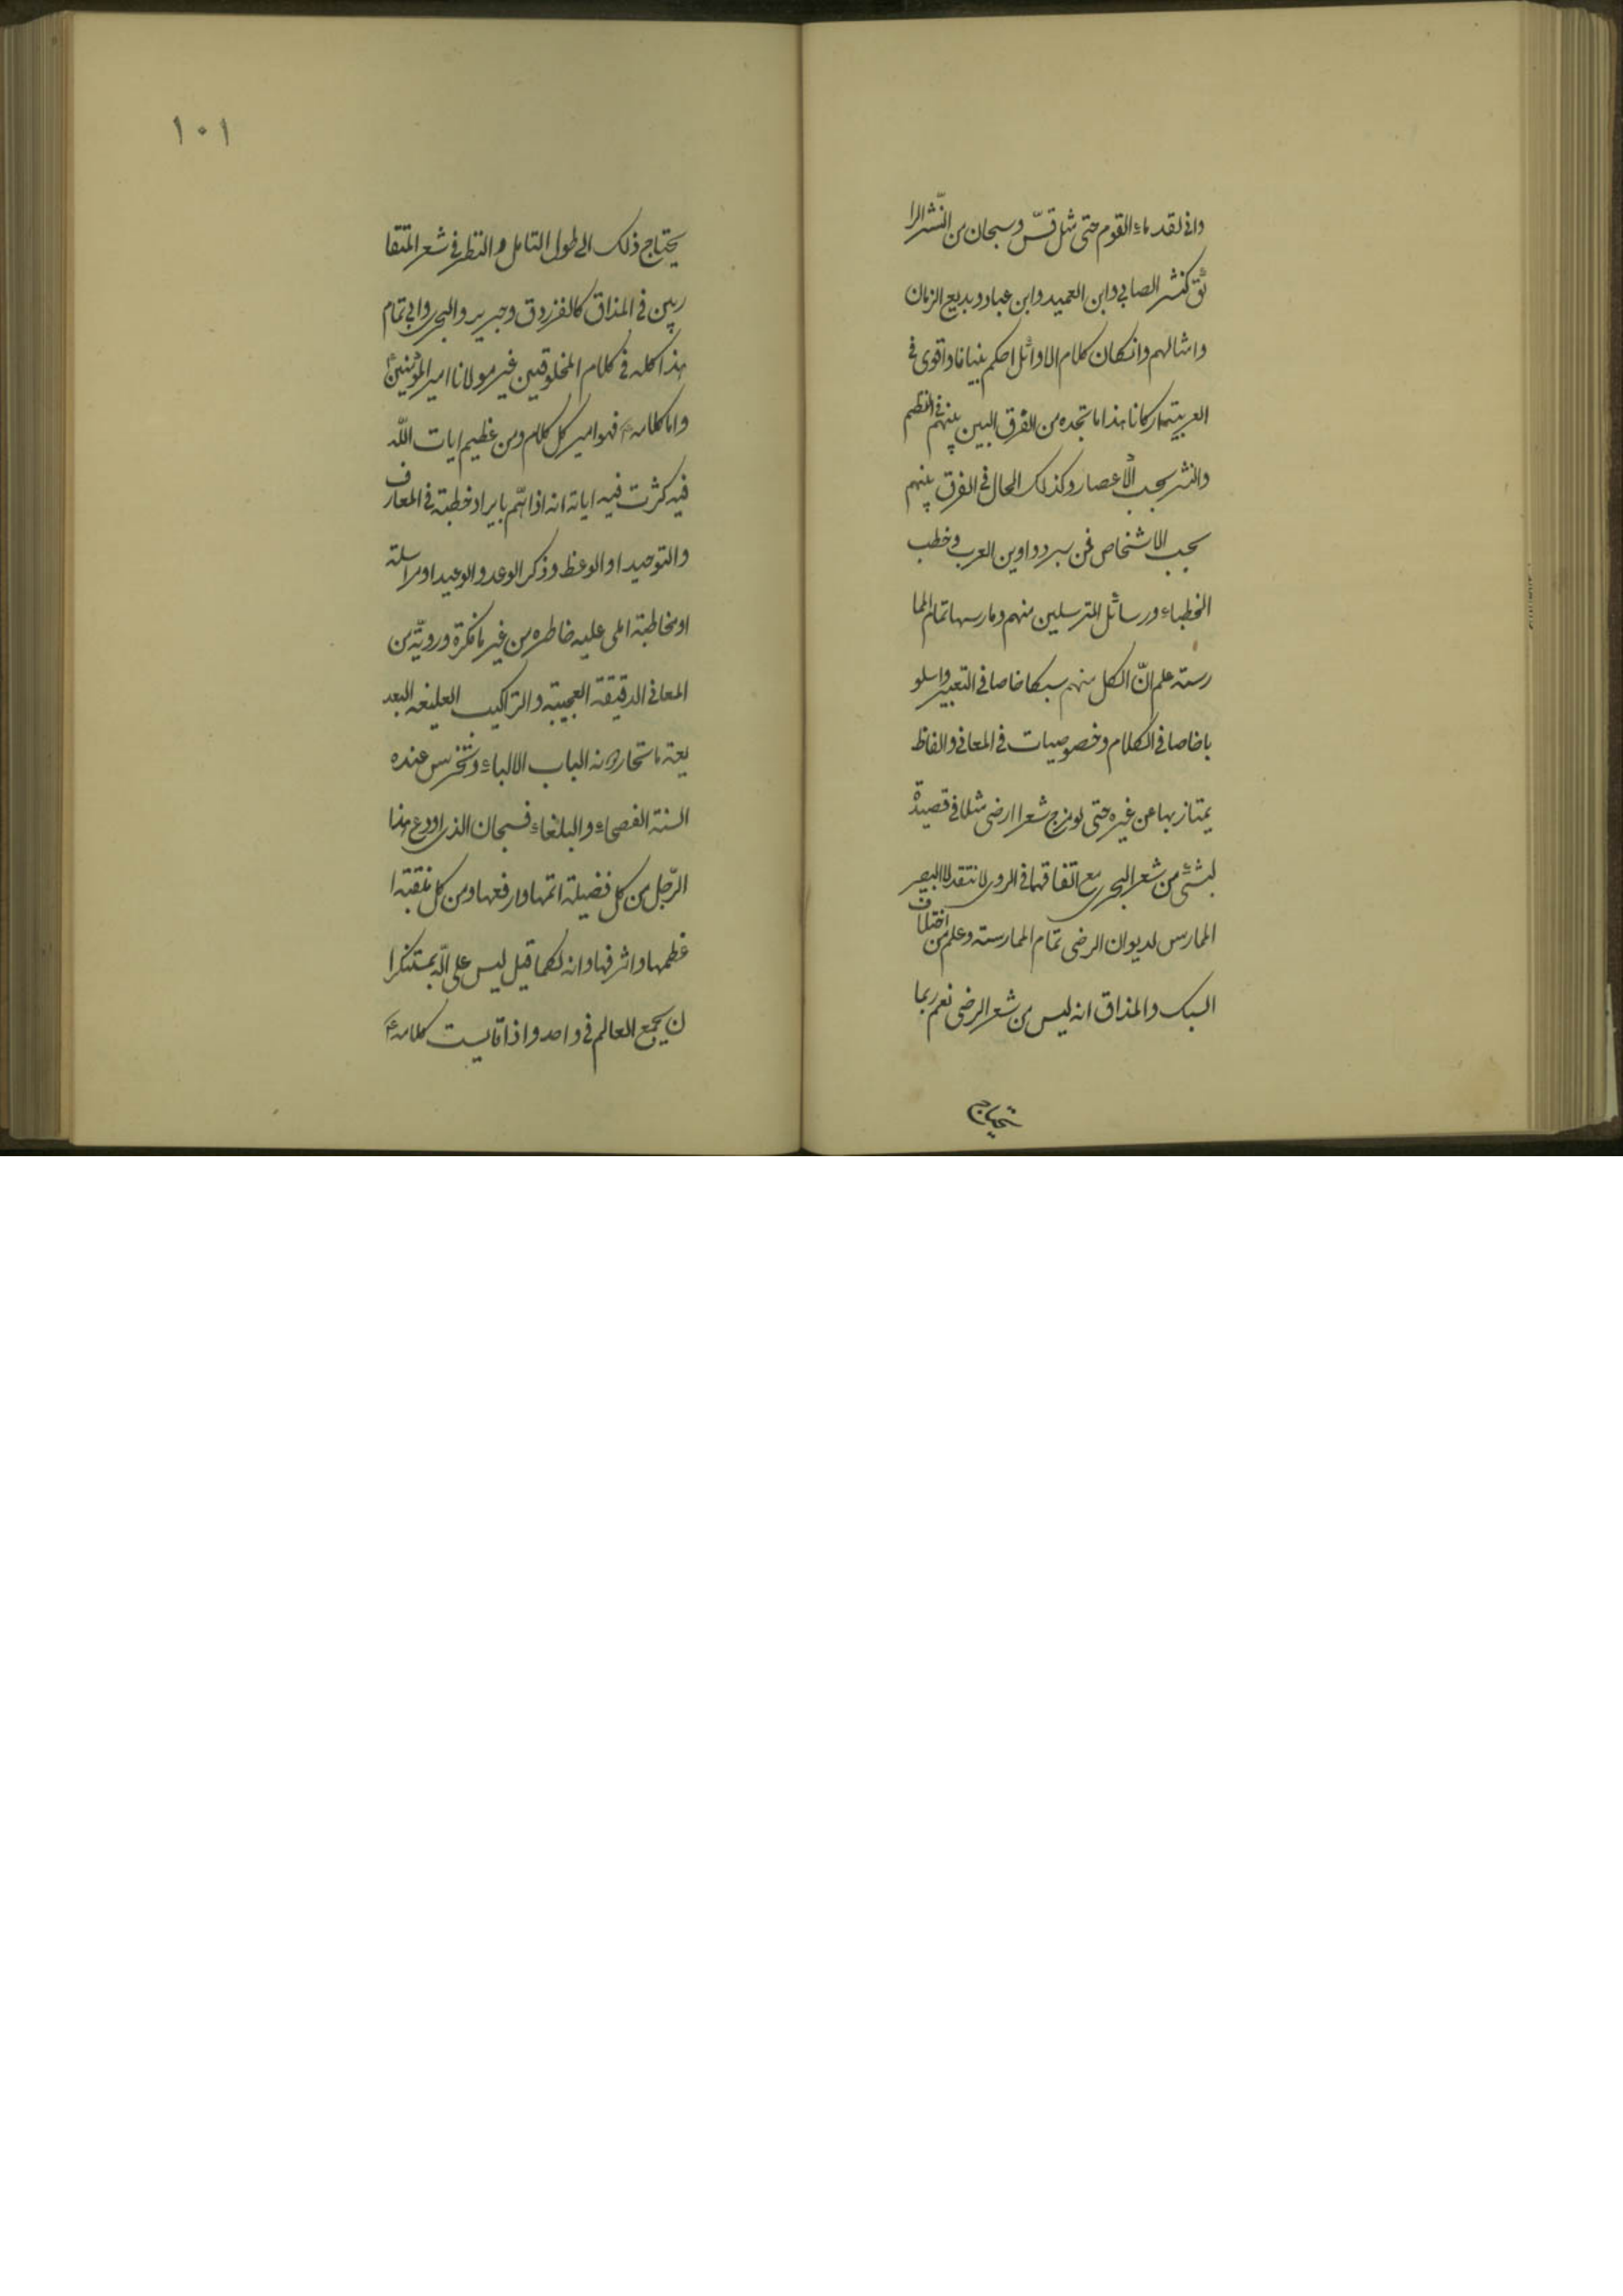 وانى لقدماء القوم حتى مثل قسّ وسبحان من النّثر الرا
ئق كنثر الصابي وابن العميد وابن عباد وبديع الزمان
وامثالهم وانكان كلام الاوائل احكم بنيانا واقوى فى
العربيته اركانا هذا ما تجده من الفرق البين بينهم فى النظم
والنثر بحسب الأعصار وكذلك الحال فى الفرق بينهم
بحسب الاشخاص فمن سبر دواوين العرب وخطب
الخطباء ورسائل المترسلين منهم ومارسها تمام المما
رسته علم انّ لكل منهم سبكا خاصا فى التعبير واسلو
با خاصا فى الكلام وخصوصيات فى المعانى والفاظ
يمتاز بها عن غيره حتى لو مزج شعر ارضى مثلا فى قصيدة
بشئ من شعر البحترى مع اتفاقهما فى الروى لانتقد البصير
الممارس لديوان الرضى تمام الممارسته وعلم من اختلاف
السبك والمذاق انه ليس من شعر الرضى نعم ربما
يحتاج
١٠١
يحتاج ذلك الى طول التامل والنظر فى شعر المتقا
ربين فى المذاق كالفرزدق وجرير والبحترى وابى تمام
هذا كله فى كلام المخلوقين غير مولانا امير المؤمنينؑ
واما كلامهؑ فهو امير كل كلام ومن عظيم ايات اللّه
فيه كثرت فيه اياته انه اذا اهتّم بايراد خطبته فى المعارف
والتوحيد او الوعظ وذكر الوعد والوعيد او مراسلته
او مخاطبته املى عليه خاطره من غير ما فكرة ورويّة من
المعانى الدقيقة العجيبته والتراكيب البعد
يعته ما تحار دونه الباب الالباء وتخرس عنده
السنة الفصحاء والبلغاء فسبحان الذى اودع هذا
الرّجل من كل فضيلة اتمها وارفعها ومن كل منقبته ا
عظمها واشرفها وانه لكما قيل ليس على اللّه بمستنكر ا
ن يجمع العالم فى واحد واذا قايست كلامهؑ